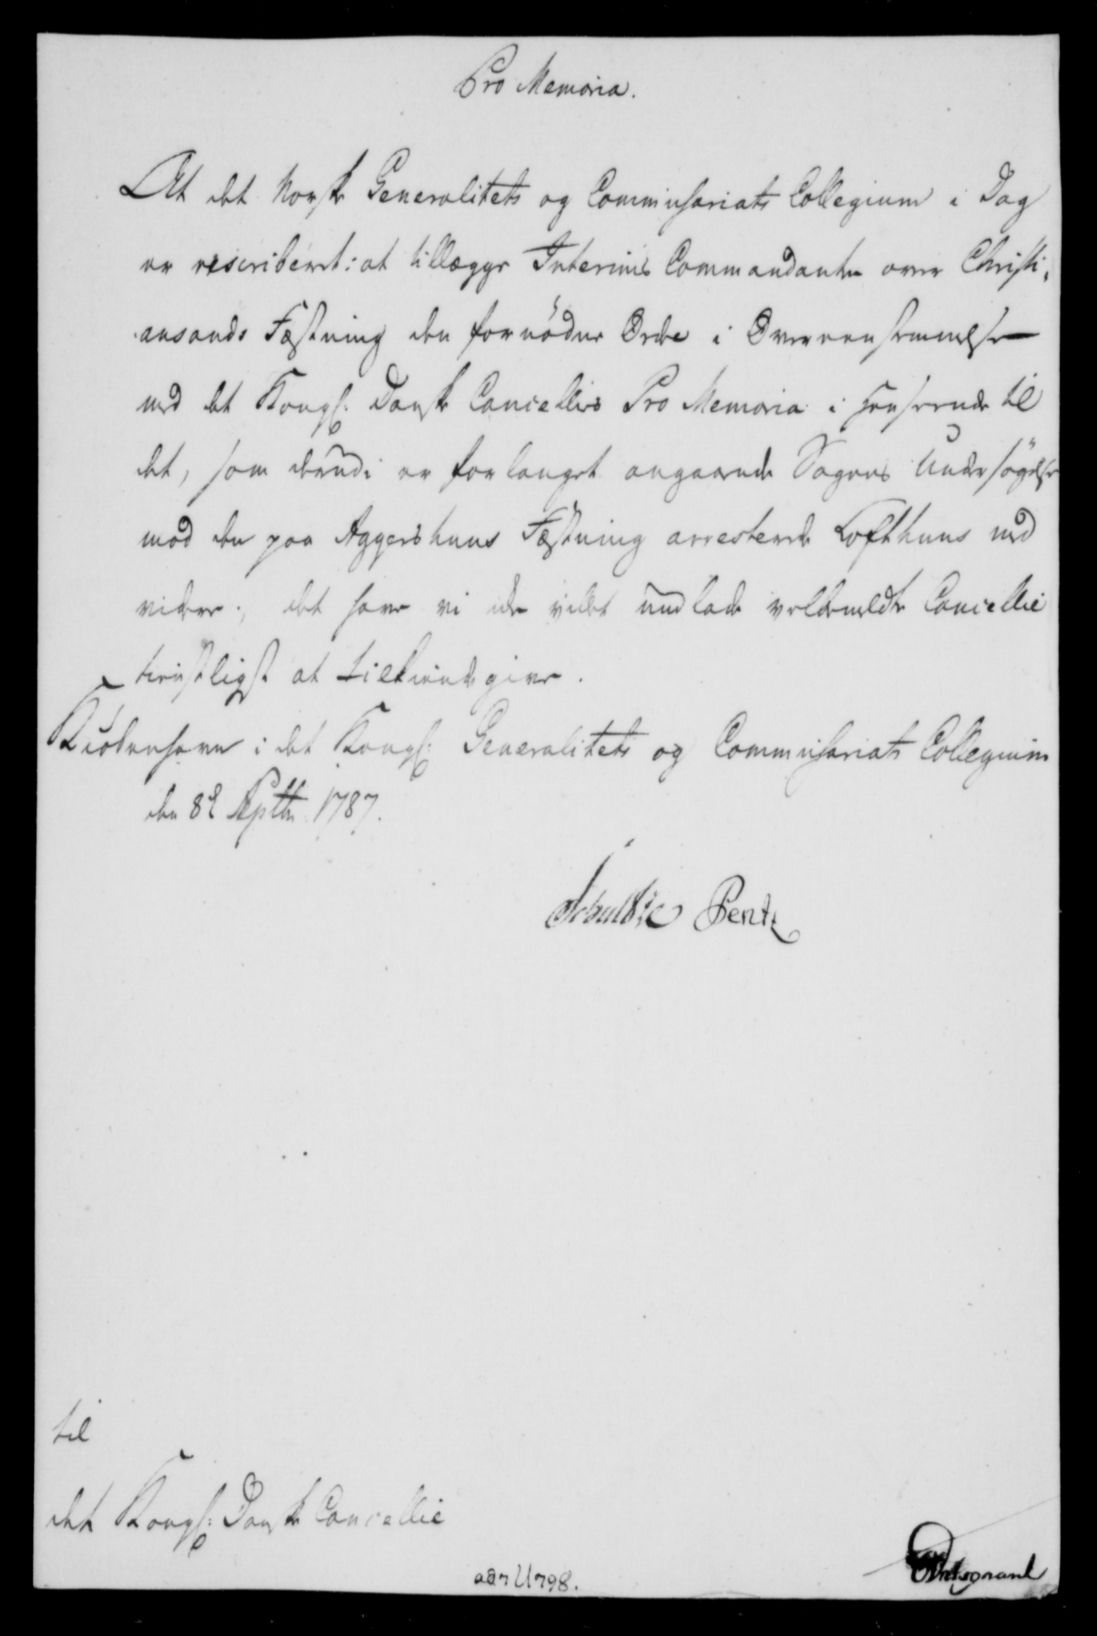 Pro Memoria.
At det Norske Generalitets og Commissariats Collegium i Dag
er rescriberet: at tillægge Interims Commandanten over Christi,
ansands Fæstning den fornödne Ordre i Overeensstemmelse
med det Kongl: Danske Cancellies Pro Memoria i henseende til
det, som derudi er forlanget angaaende Sagens Undersögelse
mod den paa Aggershuus Fæstning arresterede Lofthuus med
videre; det have vi ikke villet undlade velbemeldte Cancellie
tienstligst at tilkiendegive.
Kiöbenhavn i det Kongl: Generalitets og Commissariats Collegium
den 8de Septbr 1787.
Schultze Pentz
til
det Kongl: Danske Cancellie